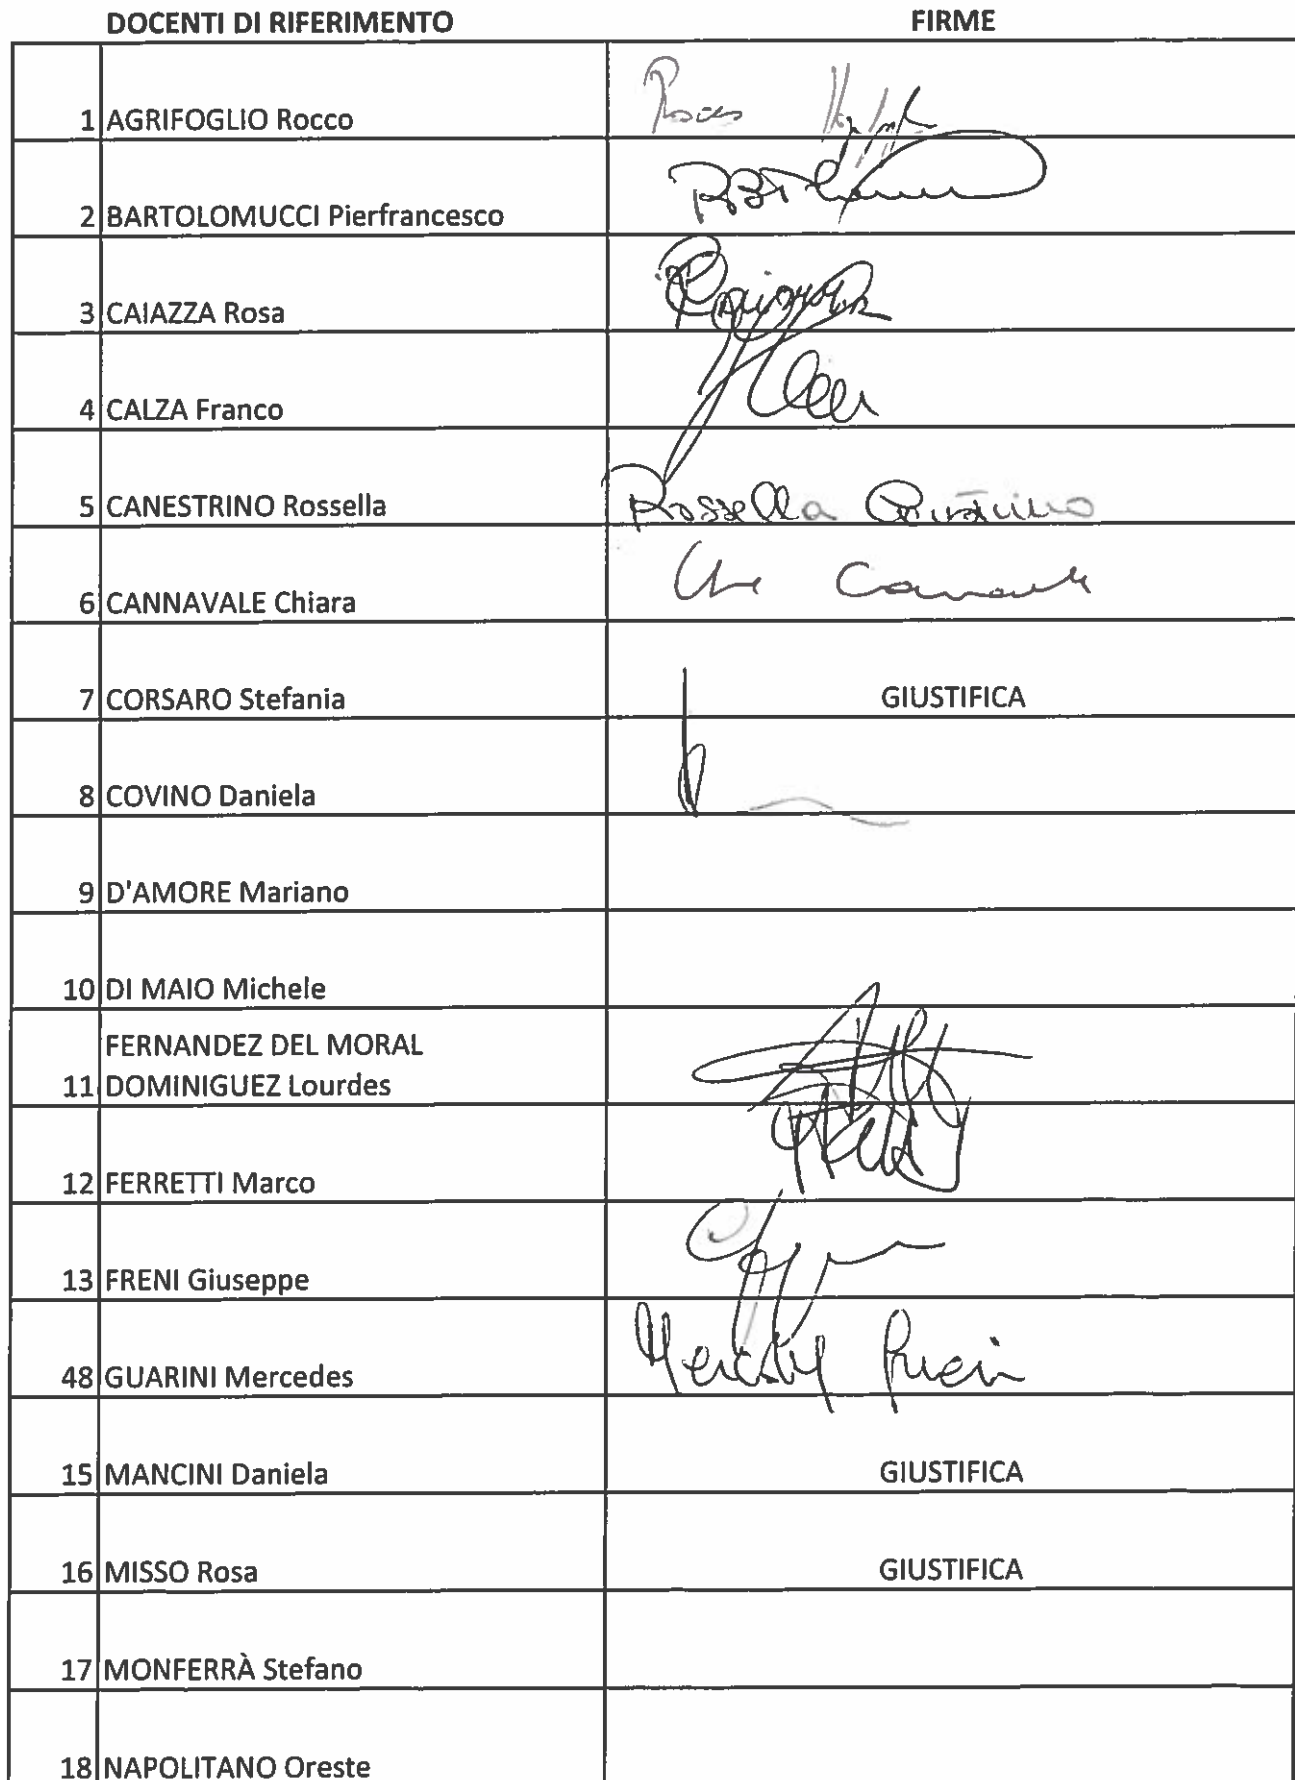 DOCENTI DI RIFERIMENTO FIRME
1 AGRIFOGLIO Rocco
2 BARTOLOMUCCI Pierfrancesco
3 CAIAZZA Rosa
4 CALZA Franco
5 CANESTRINO Rossella Rossella
6 CANNAVALE Chiara
7 CORSARO Stefania GIUSTIFICA
8 COVINO Daniela
9 D'AMORE Mariano
10 DI MAIO Michele
FERNANDEZ DEL MORAL
11 DOMINIGUEZ Lourdes
12 FERRETTI Marco
13 FRENI Giuseppe
48 GUARINI Mercedes
15 MANCINI Daniela GIUSTIFICA
16 MISSO Rosa GIUSTIFICA
17 MONFERRÀ Stefano
18 NAPOLITANO Oreste